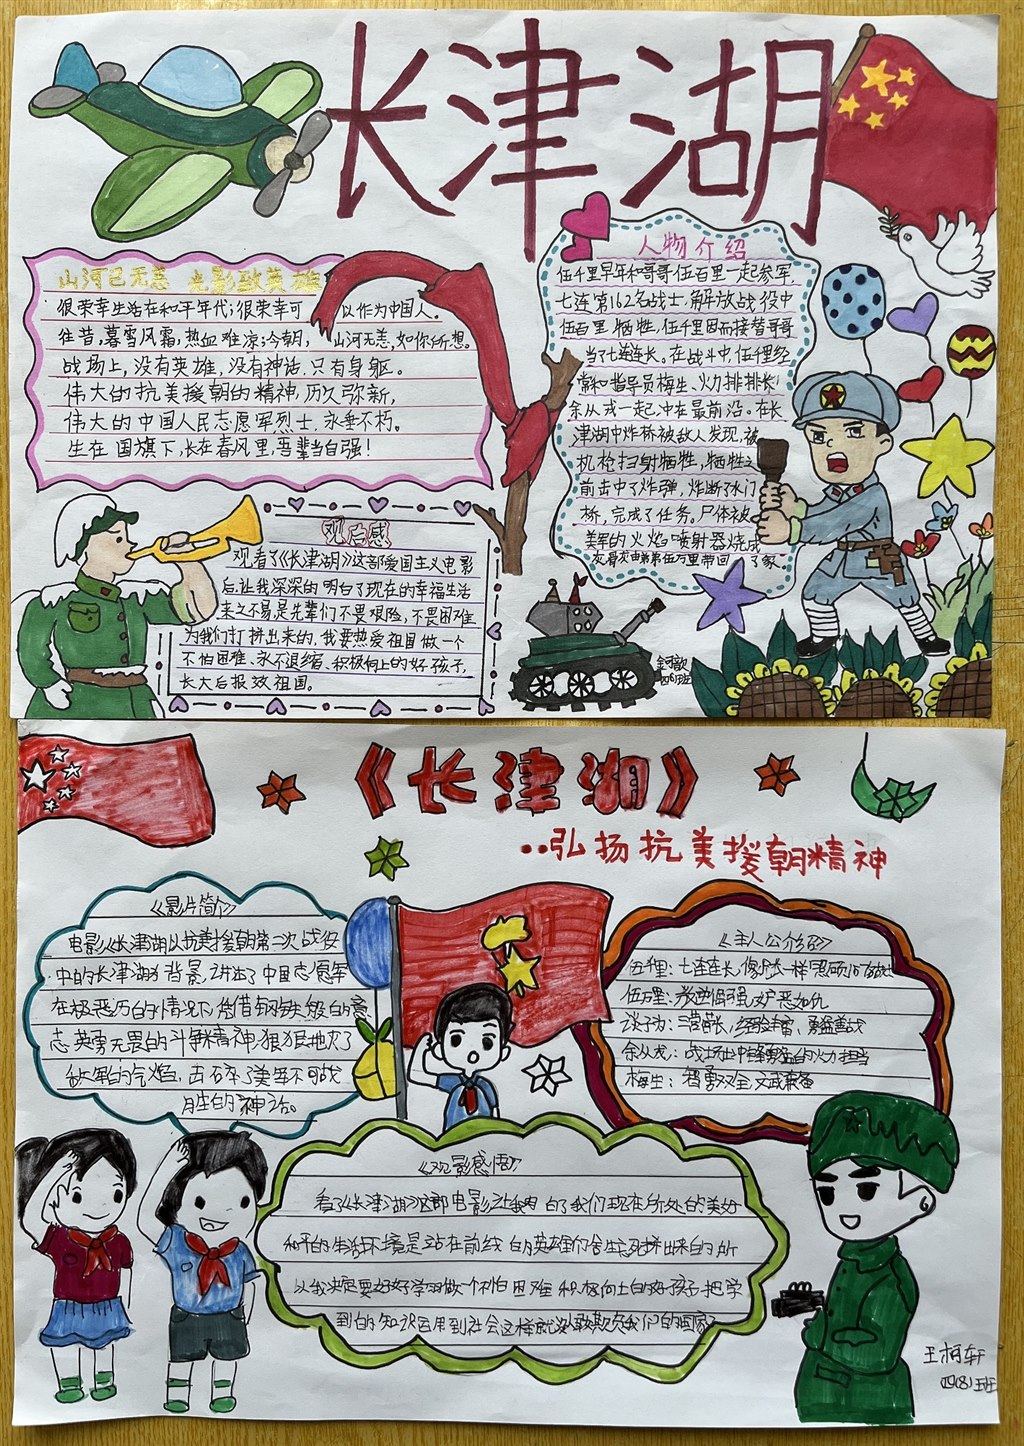 长津湖
山河已无恙 光影致英雄
很荣幸生活在和平年代;很荣幸可以作为中国人。
往昔,暮雪风霜,热血难凉;今朝,山河无恙,如你所想。
战场上,没有英雄,没有神话,只有身躯。
伟大的抗美援朝的精神,历久弥新,
伟大的中国人民志愿军烈士,永垂不朽。
生在国旗下,长在春风里,吾辈当自强!
人物介绍
伍千里早年和哥哥伍百里一起参军
七连第162名战士,解放战役中
伍百里牺牲,伍千里因而接替哥哥
当了七连连长。在战斗中,伍千里经
常和指导员梅生、火力排排长
余从戎一起冲在最前沿。在长
津湖中炸桥被敌人发现,被
机枪扫射牺牲,牺牲之
前击中了炸弹,炸断了水门
桥,完成了任务。尸体被
美军的火焰喷射器烧成
灰骨灰由弟弟伍万里带回了家
观后感
观看了《长津湖》这部爱国主义电影
后,让我深深的明白了现在的幸福生活
来之不易,是先辈们不畏艰险,不畏困难
为我们打拼出来的,我要热爱祖国做一个
不怕困难、永不退缩、积极向上的好孩子,
长大后报效祖国。
四(6)班
《长津湖》
..弘扬抗美援朝精神
《影片简介》
电影《长津湖》以抗美援朝第二次战役
中的长津湖为背景,讲述了中国志愿军
在极恶历的情况下,凭借钢铁般的意
志英勇无畏的斗争精神,狠狠地灭了
敌军的气焰,击碎了美军不可战
胜的神话。
《主人公介绍》
伍千里:七连连长,像兄长一样照顾
伍万里:叛逆倔强,嫉恶如仇
谈子为:三营营长,经验丰富、勇猛善战
余从戎:战场上冲锋勇猛的火力担当
梅生:智勇双全,文武兼备
《观影感悟》
看了《长津湖》这部电影让我明白了我们现在所处的美好
和平的生活环境是站在前线的英雄们舍生忘死拼出来的所
以我决定要好好学习做一个不怕困难积极向上的好孩子把学
到的知识运用到社会这样就没人敢欺负我们的国家
王柯轩
四(8)班